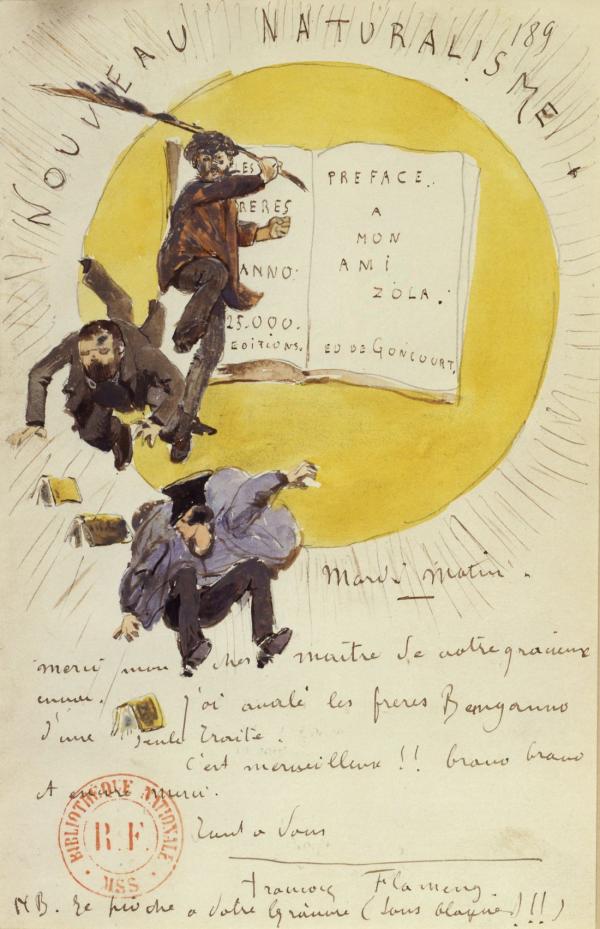 NOUVEAU NATURALISME
189
LES
FRERES
ANNO.
25.000.
EDITIONS.
PREFACE.
A
MON
AMI
ZOLA.
ED DE GONCOURT.
Mardi Matin.
merci mon cher maitre de votre gracieux
envoi. J'ai avalé les freres Bemganno
d'une seule traite.
C'est merveilleux !! bravo bravo
et encore merci.
Tout a Vous
François Flameng.
NB. Je pioche a votre (sans blague) !!!)
BIBLIOTHEQUE NATIONALE
R.F.
MSS